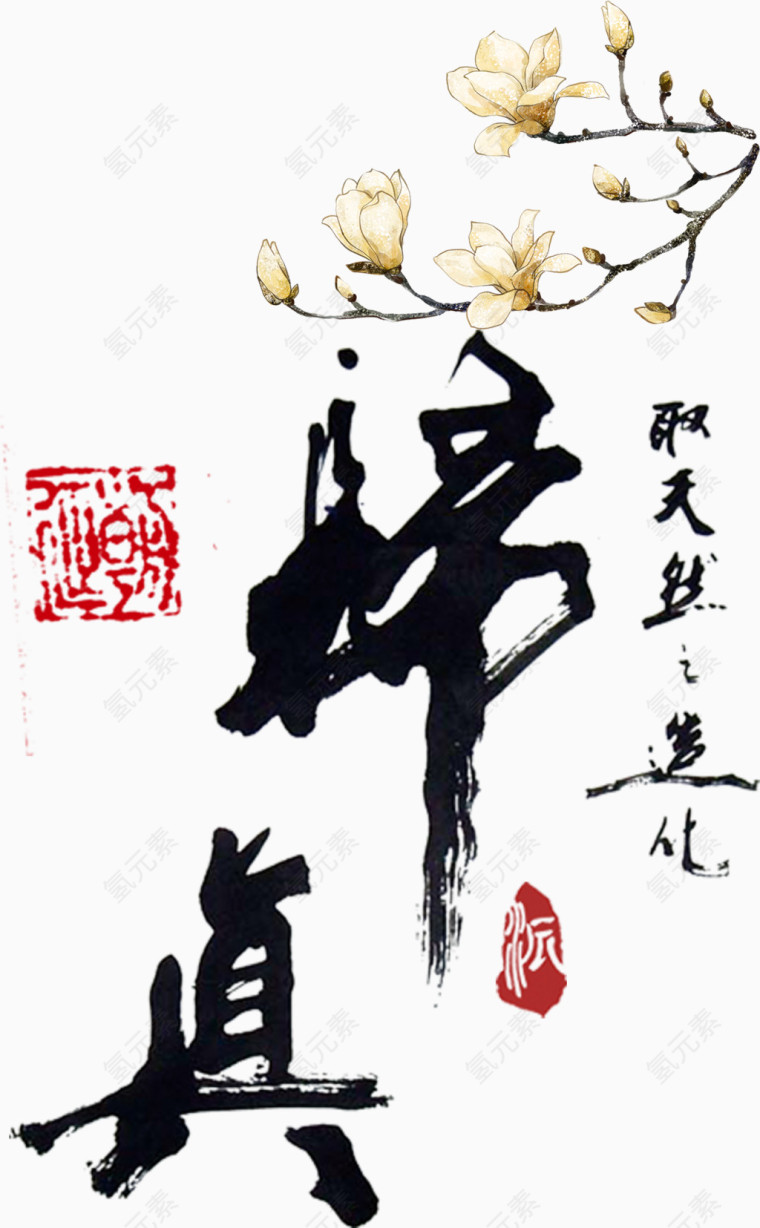 取天然之造化
歸
真
派
氢元素